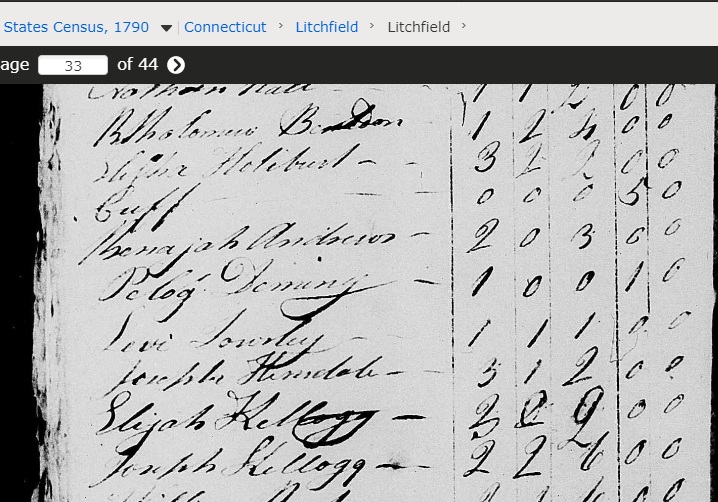 States Census, 1790 Connecticut > Litchfield > Litchfield >
age 33 of 44
Nathan Hall - - 1 1 2 0 0
Btholomew 1 2 4 0 0
Holiburt - - 3 2 2 0 0
Cuff 0 0 0 5 0
Benajah Andrews - 2 0 3 0 0
Pelog Deming - 1 0 0 1 0
Levi 1 1 1 0 0
Joseph Hinsdale - 3 1 2 0 0
Elijah Kellogg - 0 0
Joseph Kellogg - 2 2 6 0 0